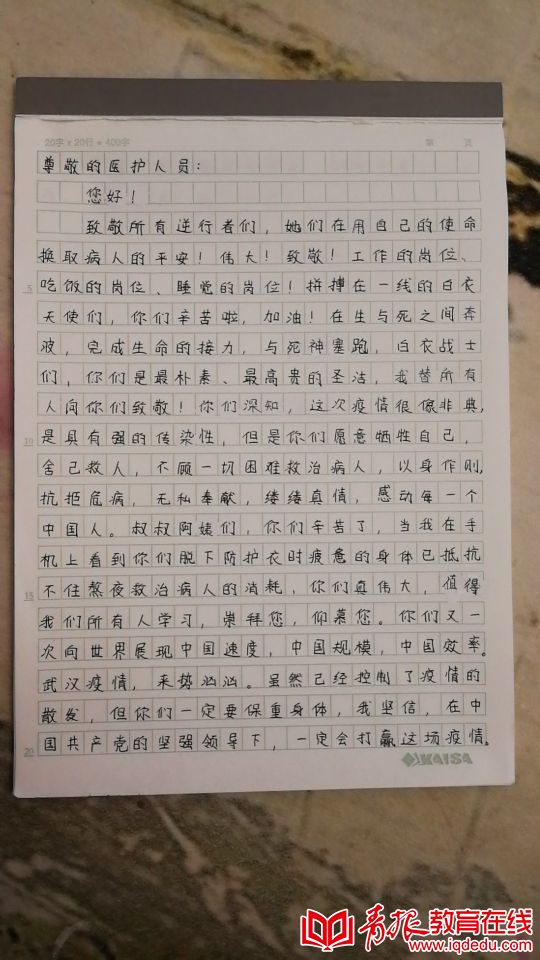 20字×20行=400字 第 页
尊敬的医护人员：
您好！
致敬所有逆行者们，她们在用自己的使命
换取病人的平安！伟大！致敬！工作的岗位、
吃饭的岗位、睡觉的岗位！拼搏在一线的白衣
天使们，你们辛苦啦，加油！在生与死之间奔
波，完成生命的接力，与死神塞跑，白衣战士
们，你们是最朴素、最高贵的圣洁，我替所有
人向你们致敬！你们深知，这次疫情很像非典，
是具有强的传染性，但是你们愿意牺牲自己，
舍己救人，不顾一切困难救治病人，以身作则，
抗拒危病，无私奉献，缕缕真情，感动每一个
中国人。叔叔阿姨们，你们辛苦了，当我在手
机上看到你们脱下防护衣时疲惫的身体已抵抗
不住熬夜救治病人的消耗，你们真伟大，值得
我们所有人学习，崇拜您，仰慕您。你们又一
次向世界展现中国速度，中国规模，中国效率。
武汉疫情，来势汹汹。虽然已经控制了疫情的
散发，但你们一定要保重身体，我坚信，在中
国共产党的坚强领导下，一定会打赢这场疫情。
5
10
15
20
KAISA
青报教育在线
www.iqdedu.com